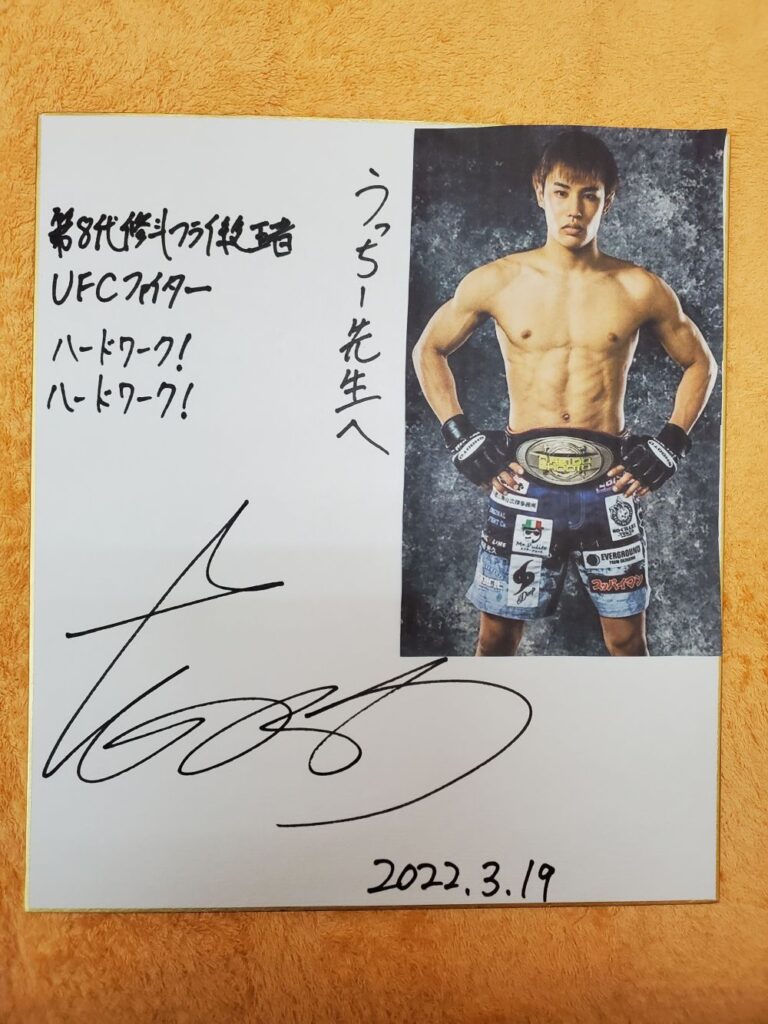 うっちー先生へ
第8代修斗フライ級王者
UFCファイター
ハードワーク!
ハードワーク!
2022.3.19
EVERGROUND
スッパイマン